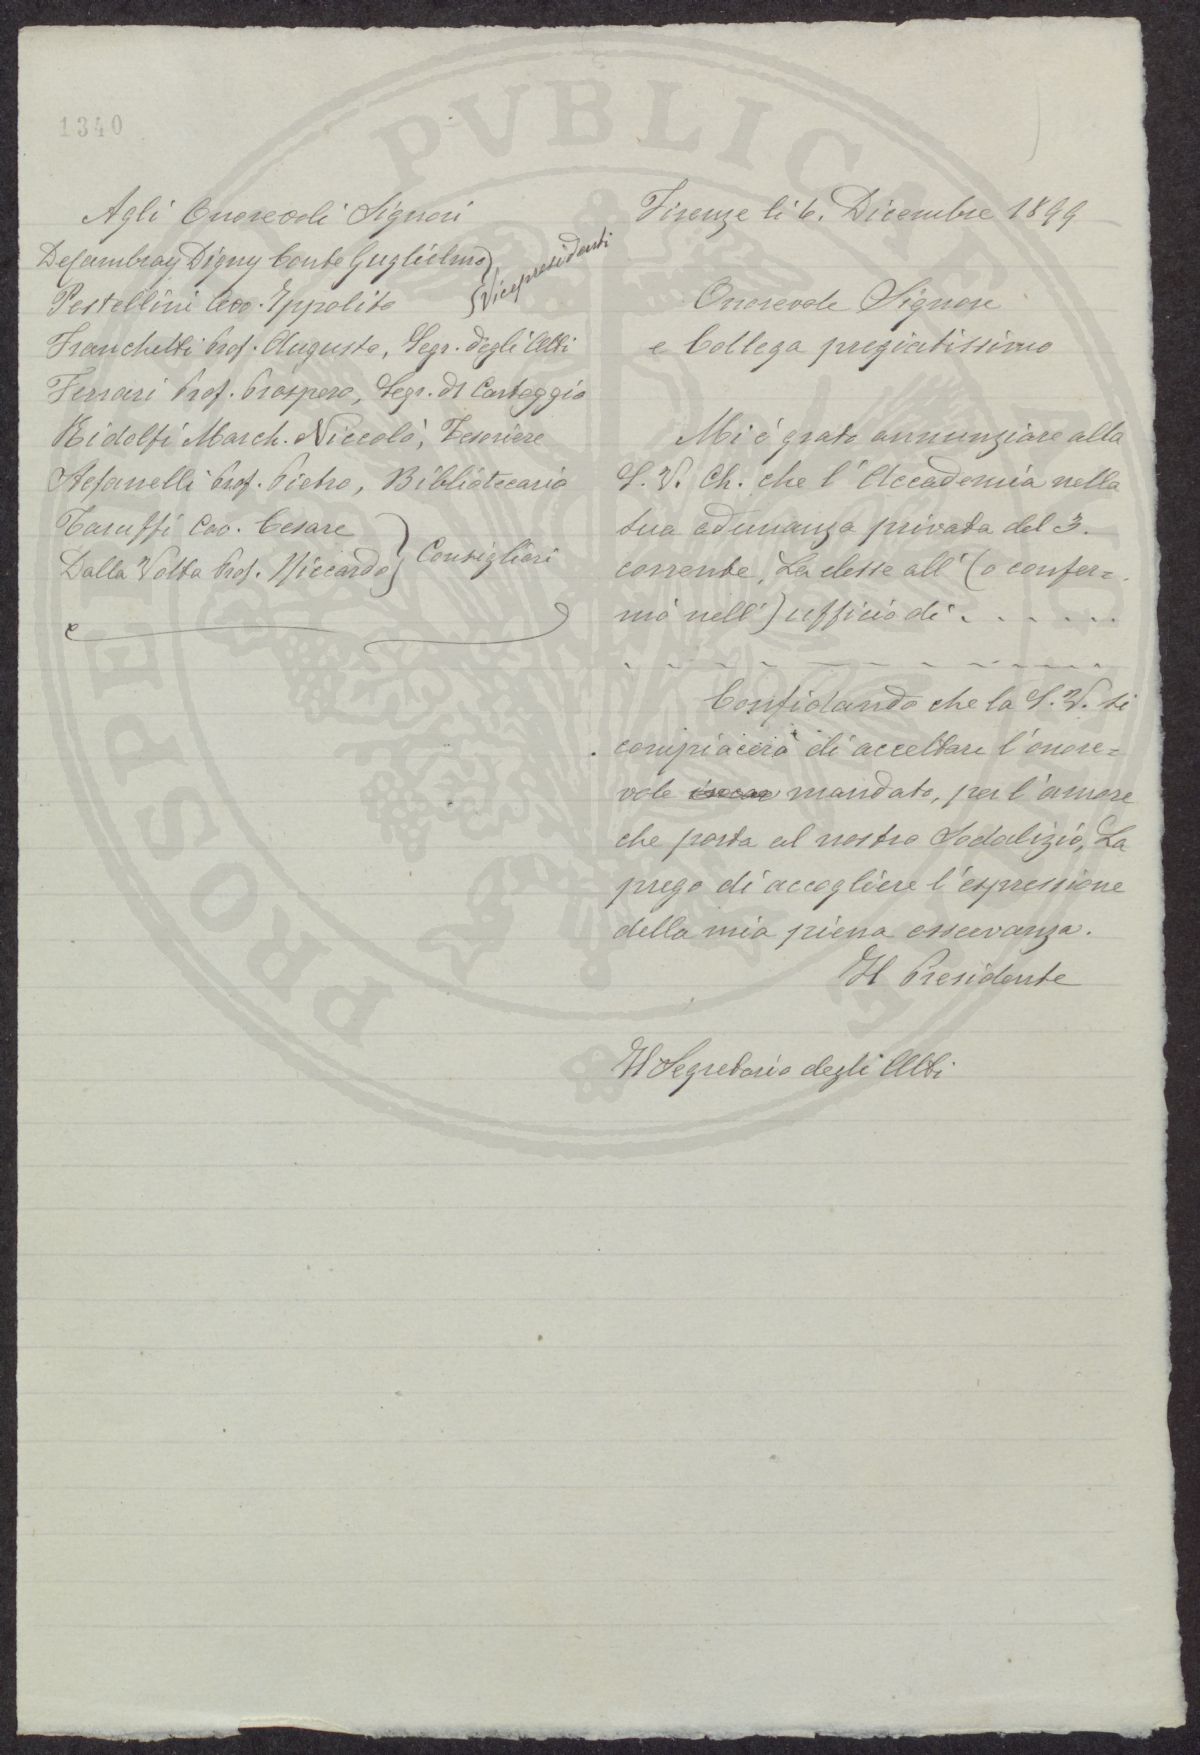 1340
Agli Onorevoli Signori
De Cambray Digny Conte Guglielmo
Pestellini Avv. Ippolito
} Vicepresidenti
Franchetti Prof. Augusto, Segr. degli Atti
Ferrari Prof. Prospero, Segr. di Carteggio
Ridolfi March. Niccolò, Tesoriere
Stefanelli Prof. Pietro, Bibliotecario
Taruffi Cav. Cesare
Dalla Volta Prof. Riccardo
} Consiglieri
Firenze li 6. Dicembre 1899
Onorevole Signore
e Collega pregiatissimo
Mi è grato annunziare alla
S. V. Ch. che l'Accademia nella
sua adunanza privata del 3.
corrente, La elesse all' (o confer=
mò nell') ufficio di . . . . . .
Confidando che la S. V. si
compiacerà di accettare l'onore=
vole mandato, per l'amore
che porta al nostro Sodalizio, La
prego di accogliere l'espressione
della mia piena osservanza.
Il Presidente
Il Segretario degli Atti
PROSPERITATI PVBLICAE AVGENDAE